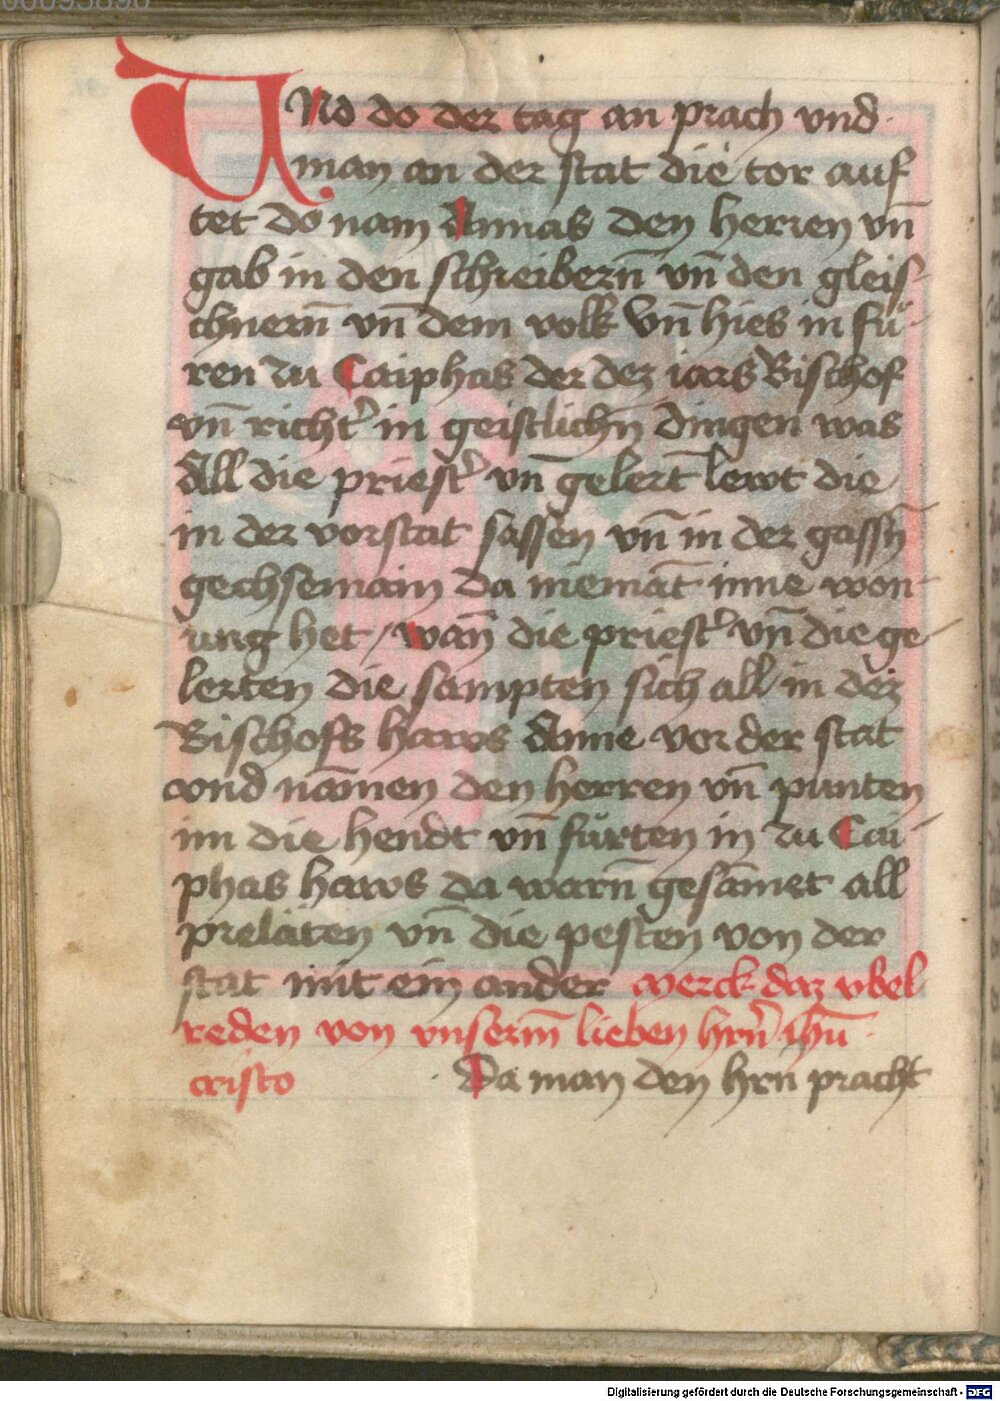 UNd do der tag an prach vnd
man an der stat die tor auf
tet do nam Annas den herren vn̄
gab in den schreibern̄ vn̄ den gleis-
chnern̄ vn̄ dem volk Vn̄ hies in fu-
ren zu Caiphas der dez iars Bischof
vn̄ richt᷑ in geistlichn̄ dingen was
All die priest᷑ vn̄ gelert̄ lewt die
in der vorstat sassen vn̄ in der gassn̄
gechsemain da niemāt inne won-
ung het / wān die priest᷑ vn̄ die ge-
lerten die sampten sich all in dez
Bischofs haws Anne vor der stat
vnd nāmen den herren vn̄ punten
im die hendt vn̄ fůrten in zu Cai-
phas haws da warn̄ gesāmet all
prelaten vn̄ die pesten von der
stat mit ein ander merck daz vbel
reden von vnserm̄ lieben hrn̄ ihū
cristo Da man den hrn̄ pracht
Digitalisierung gefördert durch die Deutsche Forschungsgemeinschaft - DFG